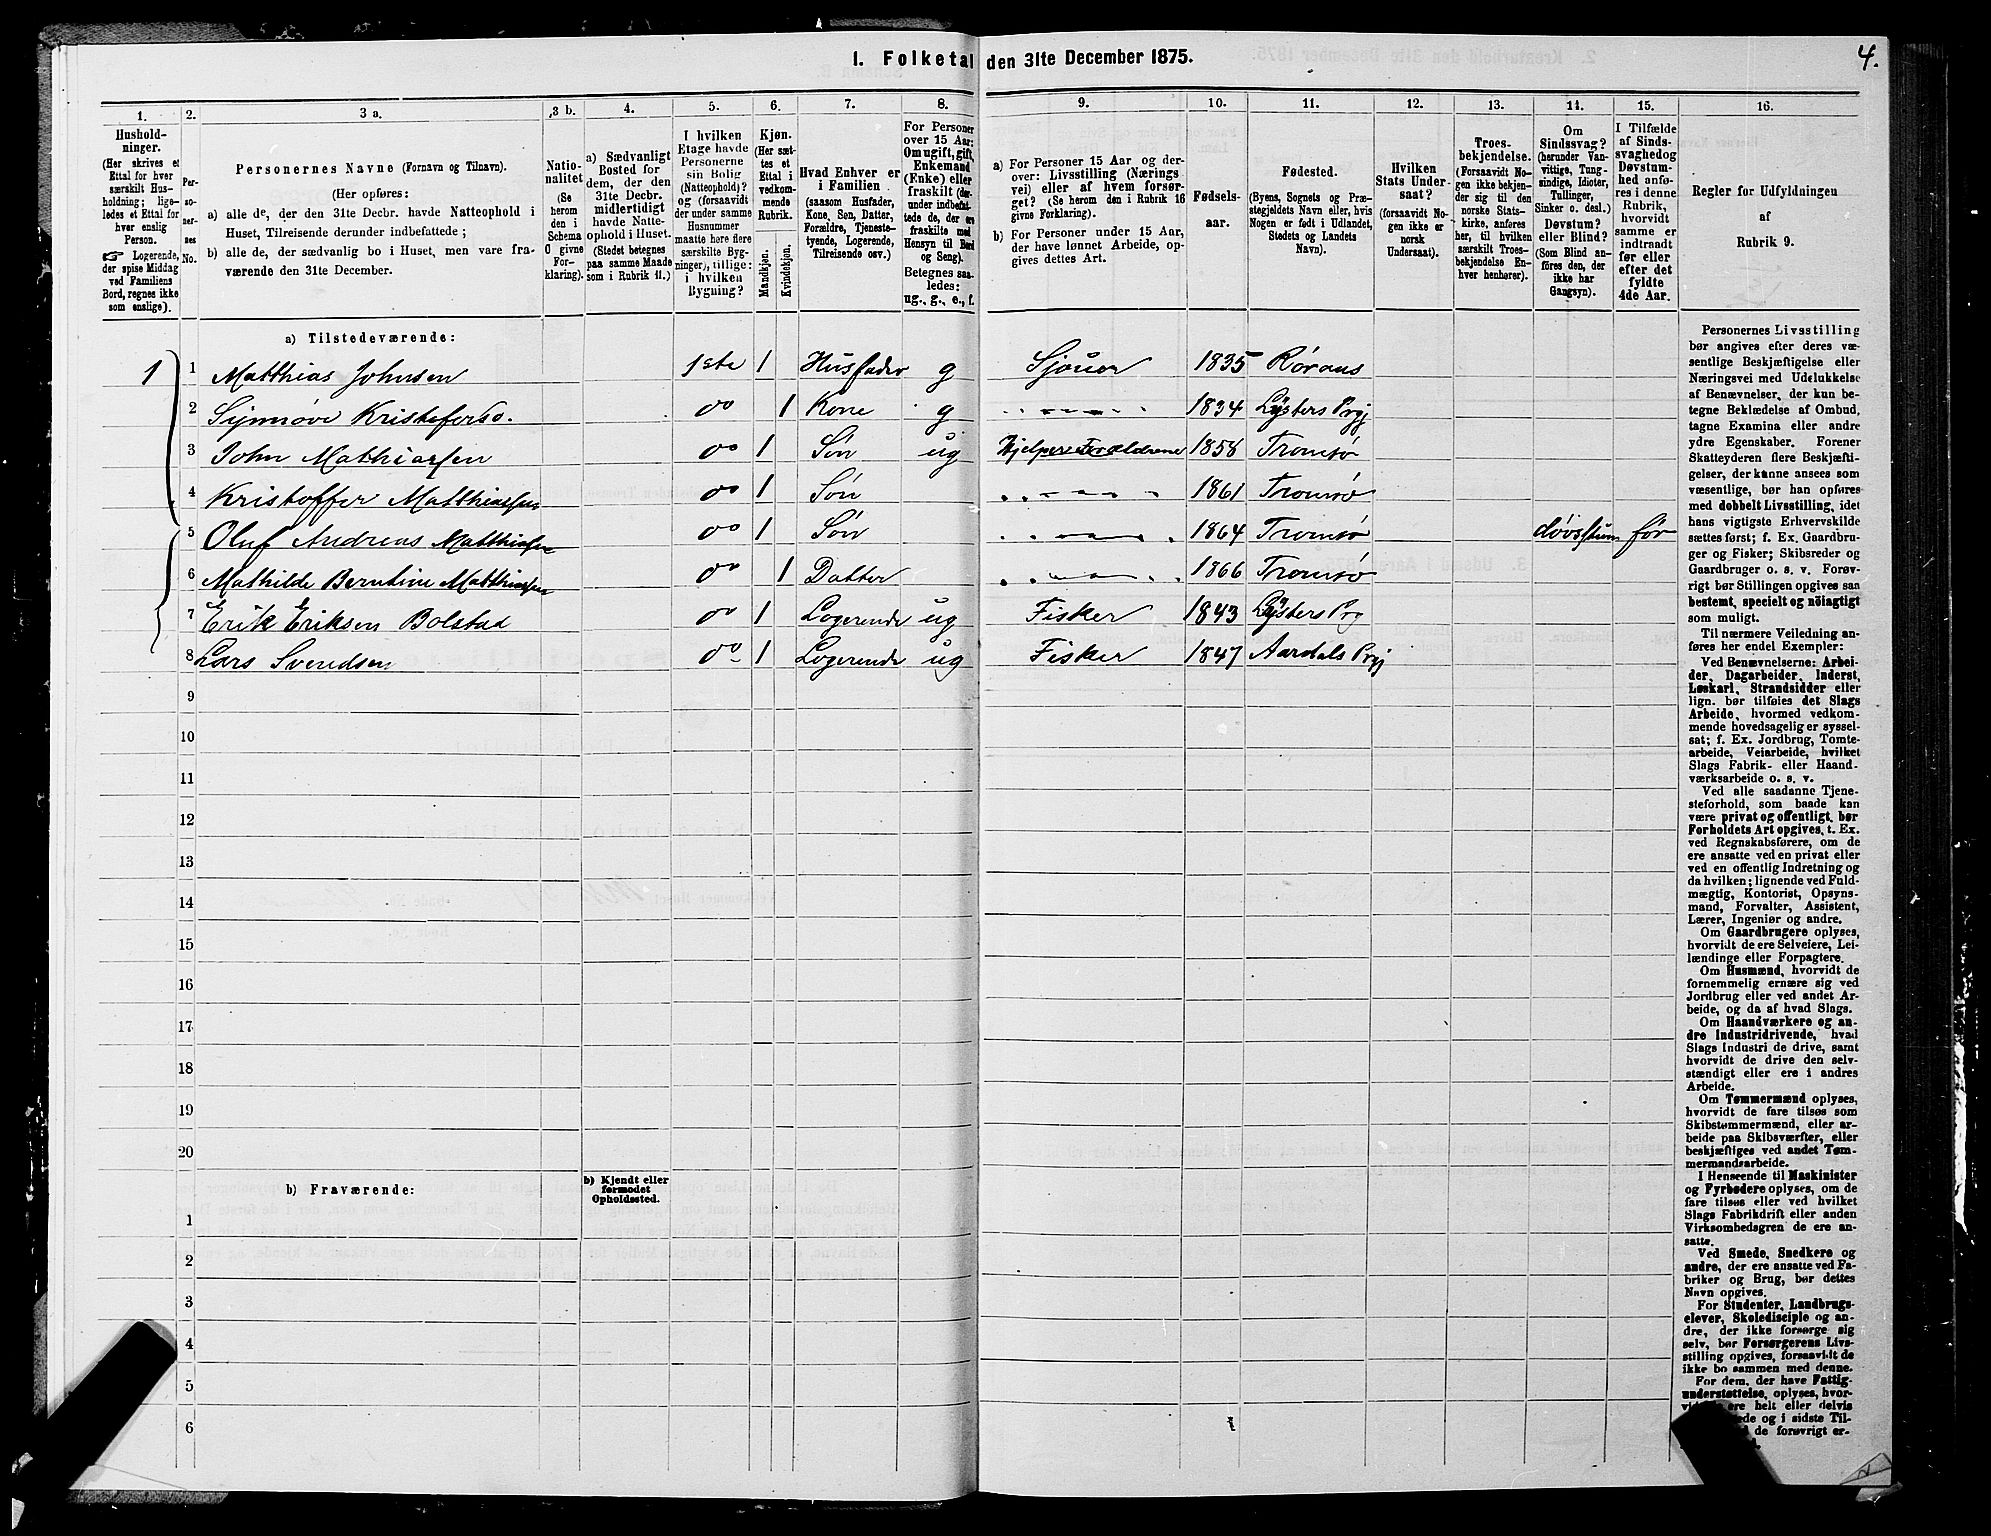 1. Folketal den 31te December 1875.
4.
1.
2.
3 a.
3 b.
4.
5.
6.
7.
8.
9.
10.
11.
12.
13.
14.
15.
16.
Hushold-
ninger.
(Her skrives et
Ettal for hver
særskilt Hus-
holdning; lige-
ledes et Ettal for
hver enslig
Person.
☞ Logerende,
der spise Middag
ved Familiens
Bord, regnes ikke
som enslige).
Per-
so-
ner-
nes
No.
Personernes Navne (Fornavn og Tilnavn).
(Her opføres:
a) alle de, der den 31te Decbr. havde Natteophold i
Huset, Tilreisende derunder indbefattede;
b) alle de, der sædvanlig bo i Huset, men vare fra-
værende den 31te December.
Natio-
nalitet
(Se
herom
den i
Schema
O givne
For-
klaring).
a) Sædvanligt
Bosted for
dem, der den
31te Decbr.
midlertidigt
havde Natte-
ophold i Huset.
(Stedet betegnes
paa samme Maade
som i Rubrik 11.)
I hvilken
Etage havde
Personerne
sin Bolig
(Natteophold)?
og (forsaavidt
der under samme
Husnummer
maatte høre flere
særskilte Byg-
ninger), tillige:
i hvilken
Bygning?
Kjøn.
(Her sæt-
tes et
Ettal i
vedkom-
mende
Rubrik.
Mandkjøn.
Kvindekjøn.
Hvad Enhver er
i Familien
(saasom Husfader,
Kone, Søn, Datter,
Forældre, Tjeneste-
tyende, Logerende,
Tilreisende osv.)
For Personer
over 15 Aar:
Om ugift, gift,
Enkemand
(Enke) eller
fraskilt (der-
under indbefat-
tede de, der ere
fraskilte med
Hensyn til Bord
og Seng).
Betegnes saa-
ledes:
ug., g., e., f.
a) For Personer 15 Aar og der-
over: Livsstilling (Nærings-
vei) eller af hvem forsør-
get? (Se herom den i Rubrik 16
givne Forklaring).
b) For Personer under 15 Aar,
der have lønnet Arbeide, op-
gives dettes Art.
Fødsels-
aar.
Fødested.
(Byens, Sognets og Præ-
stegjeldets Navn eller, hvis
Nogen er født i Udlandet,
Stedets og Landets
Navn).
Hvilken
Stats Under-
saat?
(forsaavidt No-
gen ikke er
norsk
Undersaat).
Troes-
bekjendelse.
(Forsaavidt No-
gen ikke bekjen-
der sig til den
norske Stats-
kirke, anføres
her, til hvilken
særskilt Troes-
bekjendelse En-
hver henhører).
Om
Sindssvag?
(herunder Van-
vittige, Tung-
sindige, Idioter,
Tullinger,
Sinker o. desl.)
Døvstum?
eller Blind?
(Som Blind an-
føres den, der
ikke har
Gangsyn).
I Tilfælde
af Sinds-
svaghedog
Døvstum-
hed anfø-
res i denne
Rubrik,
hvorvidt
samme er
indtraadt
før eller
efter det
fyldte
4de Aar.
Regler for Udfyldningen
af
Rubrik 9.
a) Tilstedeværende:
1 1 Matthias Johnsen 1ste 1 Husfader g Sjouer 1835 Røraas
2 Synnøve Kristofersd. oo 1 Kone g " 1834 Lysters Prgj
3 John Mathiassen oo 1 Søn ug Hjelper Forældrene 1858 Tromsø
4 Kristoffer Matthiassen oo 1 Søn " 1861 Tromsø
5 Oluf Andreas Matthiassen oo 1 Søn " 1864 Tromsø døvstum før
6 Mathilde Berntine Matthiassen oo 1 Datter " 1866 Tromsø
7 Erik Eriksen Bolstad oo 1 Logerende ug Fisker 1843 Lysters Prg
8 Lars Svendsen oo 1 Logerende ug Fisker 1847 Aardals Prgj
9
10
11
12
13
14
15
16
17
18
19
20
b) Fraværende:
b) Kjendt eller
formodet
Opholdssted.
1
2
3
4
5
6
Personernes Livsstilling
bør angives efter deres væ-
sentlige Beskjæftigelse eller
Næringsvei med Udelukkelse
af Benævnelser, der kun be-
tegne Beklædelse af Ombud,
tagne Examina eller andre
ydre Egenskaber. Forener
Skatteyderen flere Beskjæfti-
gelser, der kunne ansees som
væsentlige, bør han opføres
med dobbelt Livsstilling, idet
hans vigtigste Erhvervskilde
sættes først; f. Ex. Gaardbru-
ger og Fisker; Skibsreder og
Gaardbruger o. s. v. Forøv-
rigt bør Stillingen opgives saa
bestemt, specielt og nöiagtigt
som muligt.
Til nærmere Veiledning an-
føres her endel Exempler:
Ved Benævnelserne: Arbei-
der, Dagarbeider, Inderst,
Løskarl, Strandsidder eller
lign. bør tilføies det Slags
Arbeide, hvormed vedkom-
mende hovedsagelig er syssel-
sat; f. Ex. Jordbrug, Tomte-
arbeide, Veiarbeide, hvilket
Slags Fabrik- eller Haand-
værksarbeide o. s. v.
Ved alle saadanne Tjene-
steforhold, som baade kan
være privat og offentligt, bør
Forholdets Art opgives, t. Ex.
ved Regnskabsførere, om de
ere ansatte ved en privat eller
ved en offentlig Indretning og
da hvilken; lignende ved Fuld-
mægtig, Kontorist, Opsyns-
mand, Forvalter, Assistent,
Lærer, Ingeniør og andre.
Om Gaardbrugere oplyses,
hvorvidt de ere Selveiere, Lei-
lændinge eller Forpagtere.
Om Husmænd, hvorvidt de
fornemmelig ernære sig ved
Jordbrug eller ved andet Ar-
beide, og da af hvad Slags.
Om Haandværkere og an-
dre industridrivende, hvad
Slags Industri de drive, samt
hvorvidt de drive den selv-
stændigt eller ere i andres
Arbeide.
Om Tømmermænd oplyses,
hvorvidt de fare tilsøs som
Skibstømmermænd, eller ar-
beide paa Skibsværfter, eller
beskjæftiges ved andet Tøm-
mermandsarbeide.
I Henseende til Maskinister
og Fyrbødere oplyses, om de
fare tilsøs eller ved hvilket
Slags Fabrikdrift eller anden
Virksombedsgren de ere an-
satte.
Ved Smede, Snedkere og
andre, der ere ansatte ved Fa-
briker og Brug, bør dettes
Navn opgives.
For Studenter, Landbrugs-
elever, Skoledisciple og an-
dre, der ikke forsørge sig
selv, bør Forsørgerens Livs-
stilling opgives, forsaavidt de
ikke bo sammen med denne.
For dem, der have Fattig-
understøttelse, oplyses, hvor-
ere helt eller delvis
og i sidste Til-
de forøvrigt er-